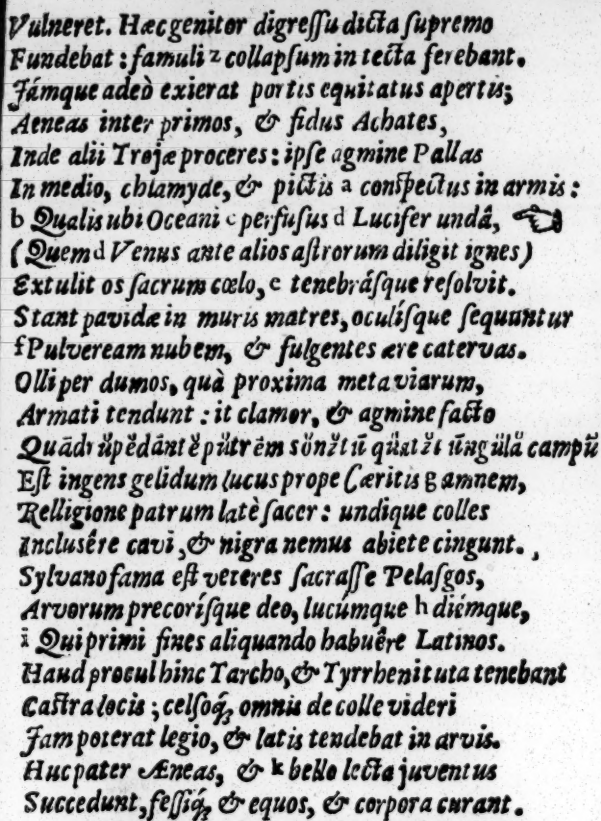 Vulneret. Hæc genitor digreſſu dicta ſupremo
Fundebat : famuli z collapſum in tecta ferebant.
Jámque adeò exierat portis equitatus apertis;
Aeneas inter primos, & fidus Achates,
Inde alii Trojæ proceres : ipſe agmine Pallas
In medio, chlamyde, & pictis a conſpectus in armis :
b Qualis ubi Oceani c perfuſus d Lucifer undâ, ☜
(Quem d Venus ante alios aſtrorum diligit ignes)
Extulit os ſacrum cœlo, e tenebráſque reſolvit.
Stant pavidæ in muris matres, oculíſque ſequuntur
f Pulveream nubem, & fulgentes ære catervas.
Olli per dumos, quà proxima meta viarum,
Armati tendunt : it clamor, & agmine facto
Quādrŭpĕdānte pŭtrēm sŏnĭtū quătĭt ūngŭlă campū
Eſt ingens gelidum lucus prope Cæritis g amnem,
Relligione patrum latè ſacer : undique colles
Incluſêre cavi, & nigra nemus abiete cingunt.
Sylvano fama eſt veteres ſacraſſe Pelaſgos,
Arvorum pecoríſque deo, lucúmque h diémque,
i Qui primi fines aliquando habuêre Latinos.
Haud procul hinc Tarcho, & Tyrrheni tuta tenebant
Caſtra locis ; celſoq́; omnis de colle videri
Jam poterat legio, & latis tendebat in arvis.
Huc pater Æneas, & k bello lecta juventus
Succedunt, feſſiq́; & equos, & corpora curant.